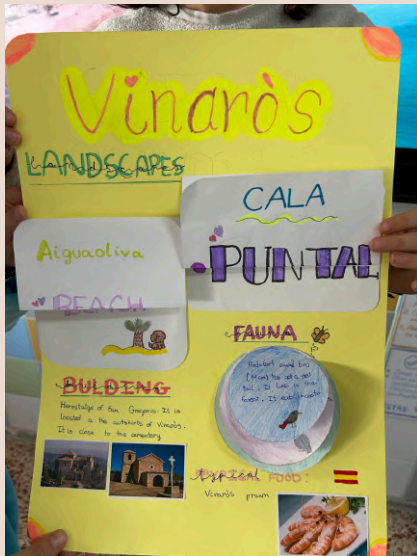 Vinaròs
LANDSCAPES
CALA
PUNTAL
Aiguaoliva
BEACH
FAUNA
BULDING
Hermitatge of San Gregorio. It is
located a the outskirts of Vinaròs.
It is close to the cementery.
forest. It eats insects
typical FOOD:
Vinaròs prawn